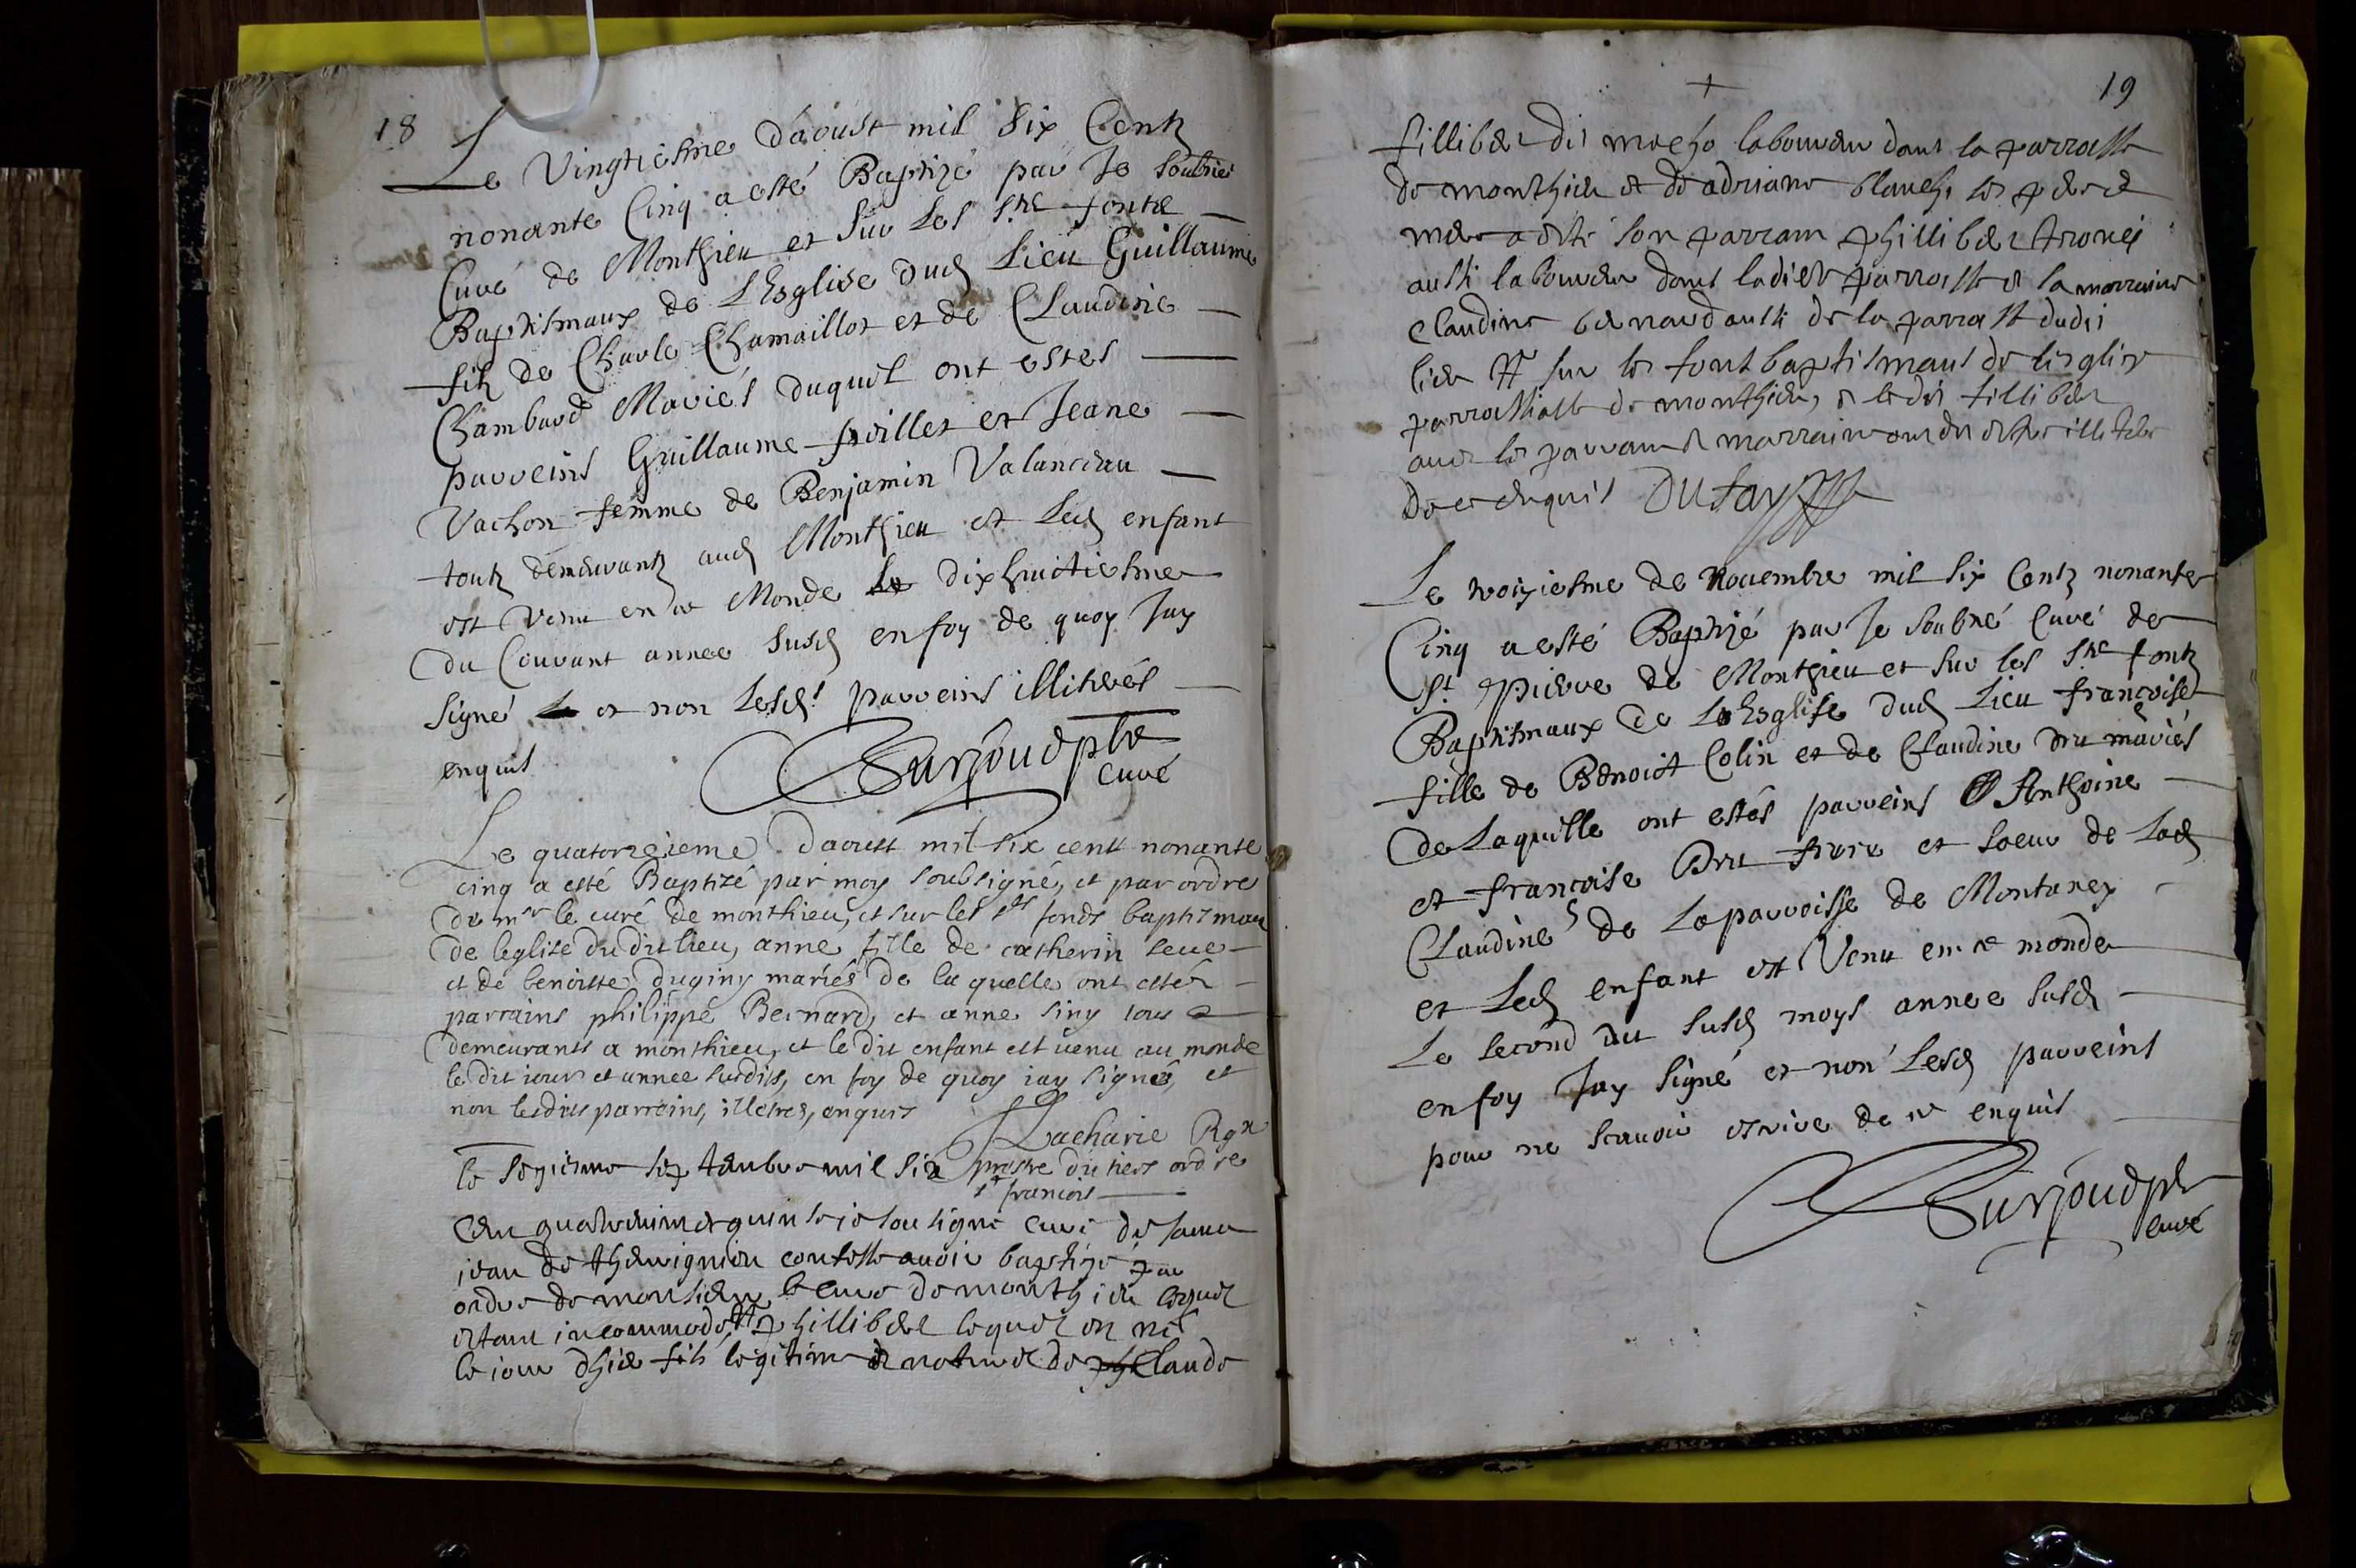 18
Le Vingtiesme d'aoust mil six Centz
nonante Cinq a esté Baptizé par Je soubné
Curé de Monthieu et sur Les stz fontz
Baptismaux de L'Esglise dud Lieu Guillaume
filz de Charle Chamaillot et de Claudine
Chambard Mariés duquel ont estes
parreins Guillaume et Jeane
Vachon femme de Benjamin Valancieau
toutz demeurantz aud Monthieu et Led enfant
est Venu en ce Monde Le dixhuictiesme
du Courant annee susd en foy de quoy Jay
signé et non Lesdt parreins illiterés
enquis Surjoud ptre
curé
Le quatorzeieme daoust mil six cents nonante
cinq a esté Baptizé par moy soubsigné, et par ordre
de msr le curé de monthieu, et sur les sts fonds baptismau
de leglise du dit lieu, anne fille de catherin seue
et de benoitte duginy mariés de la quelle ont estés
parrains philippe Bernard, et anne siny tous
demeurants a monthieu, et le dit enfant est venu au monde
le dit iour et annee susdits, en foy de quoy iay signé, et
non lesdits parrains, illetres, enquis
Zacharie Rgx
le seziesme septembre mil six prestre du tiers ordre
st francois
cen quatreuint quinse ie sousigné curé de saint
iean de thurignieu confesse auoir baptizé par
ordre de monsieur le curé de monthieu lequel
estant incommodé phillibert lequel est né
le iour dhier fils legitime et naturel de Claude
19
fillibert dit laboureur dans la parrosse
de monthieu et de adriane blanche ses pere et
mere a esté son parrain phillibert
aussi laboureur dans ladicte parrosse et la marraine
claudine bernard aussi de la parrosse dudit
lieu sur les fonts baptismaus de lesglise
parrossialle de monthieu, et ledit fillibert
auec les parrain et marraine ont dit estre illitere
de ce enquis Dufay
Le troiziesme de Nouembre mil six Centz nonante
Cinq a esté Baptizé par Je soubné Curé de
St pierre de Monthieu et sur les stz fontz
Baptismaux de L'Esglise dud Lieu françoise
fille de Benoict Colin et de Claudine dru mariés
de Laquelle ont estés parreins Anthoine
et françoise Dru frere et soeur de Lad
Claudine de La parroisse de Montaney
et Led enfant est Venu en ce monde
Le second du susd moys annee susd
en foy Jay signé et non Lesd parreins
pour ne scauoir escrire de ce enquis
Surjoud ptr
curé